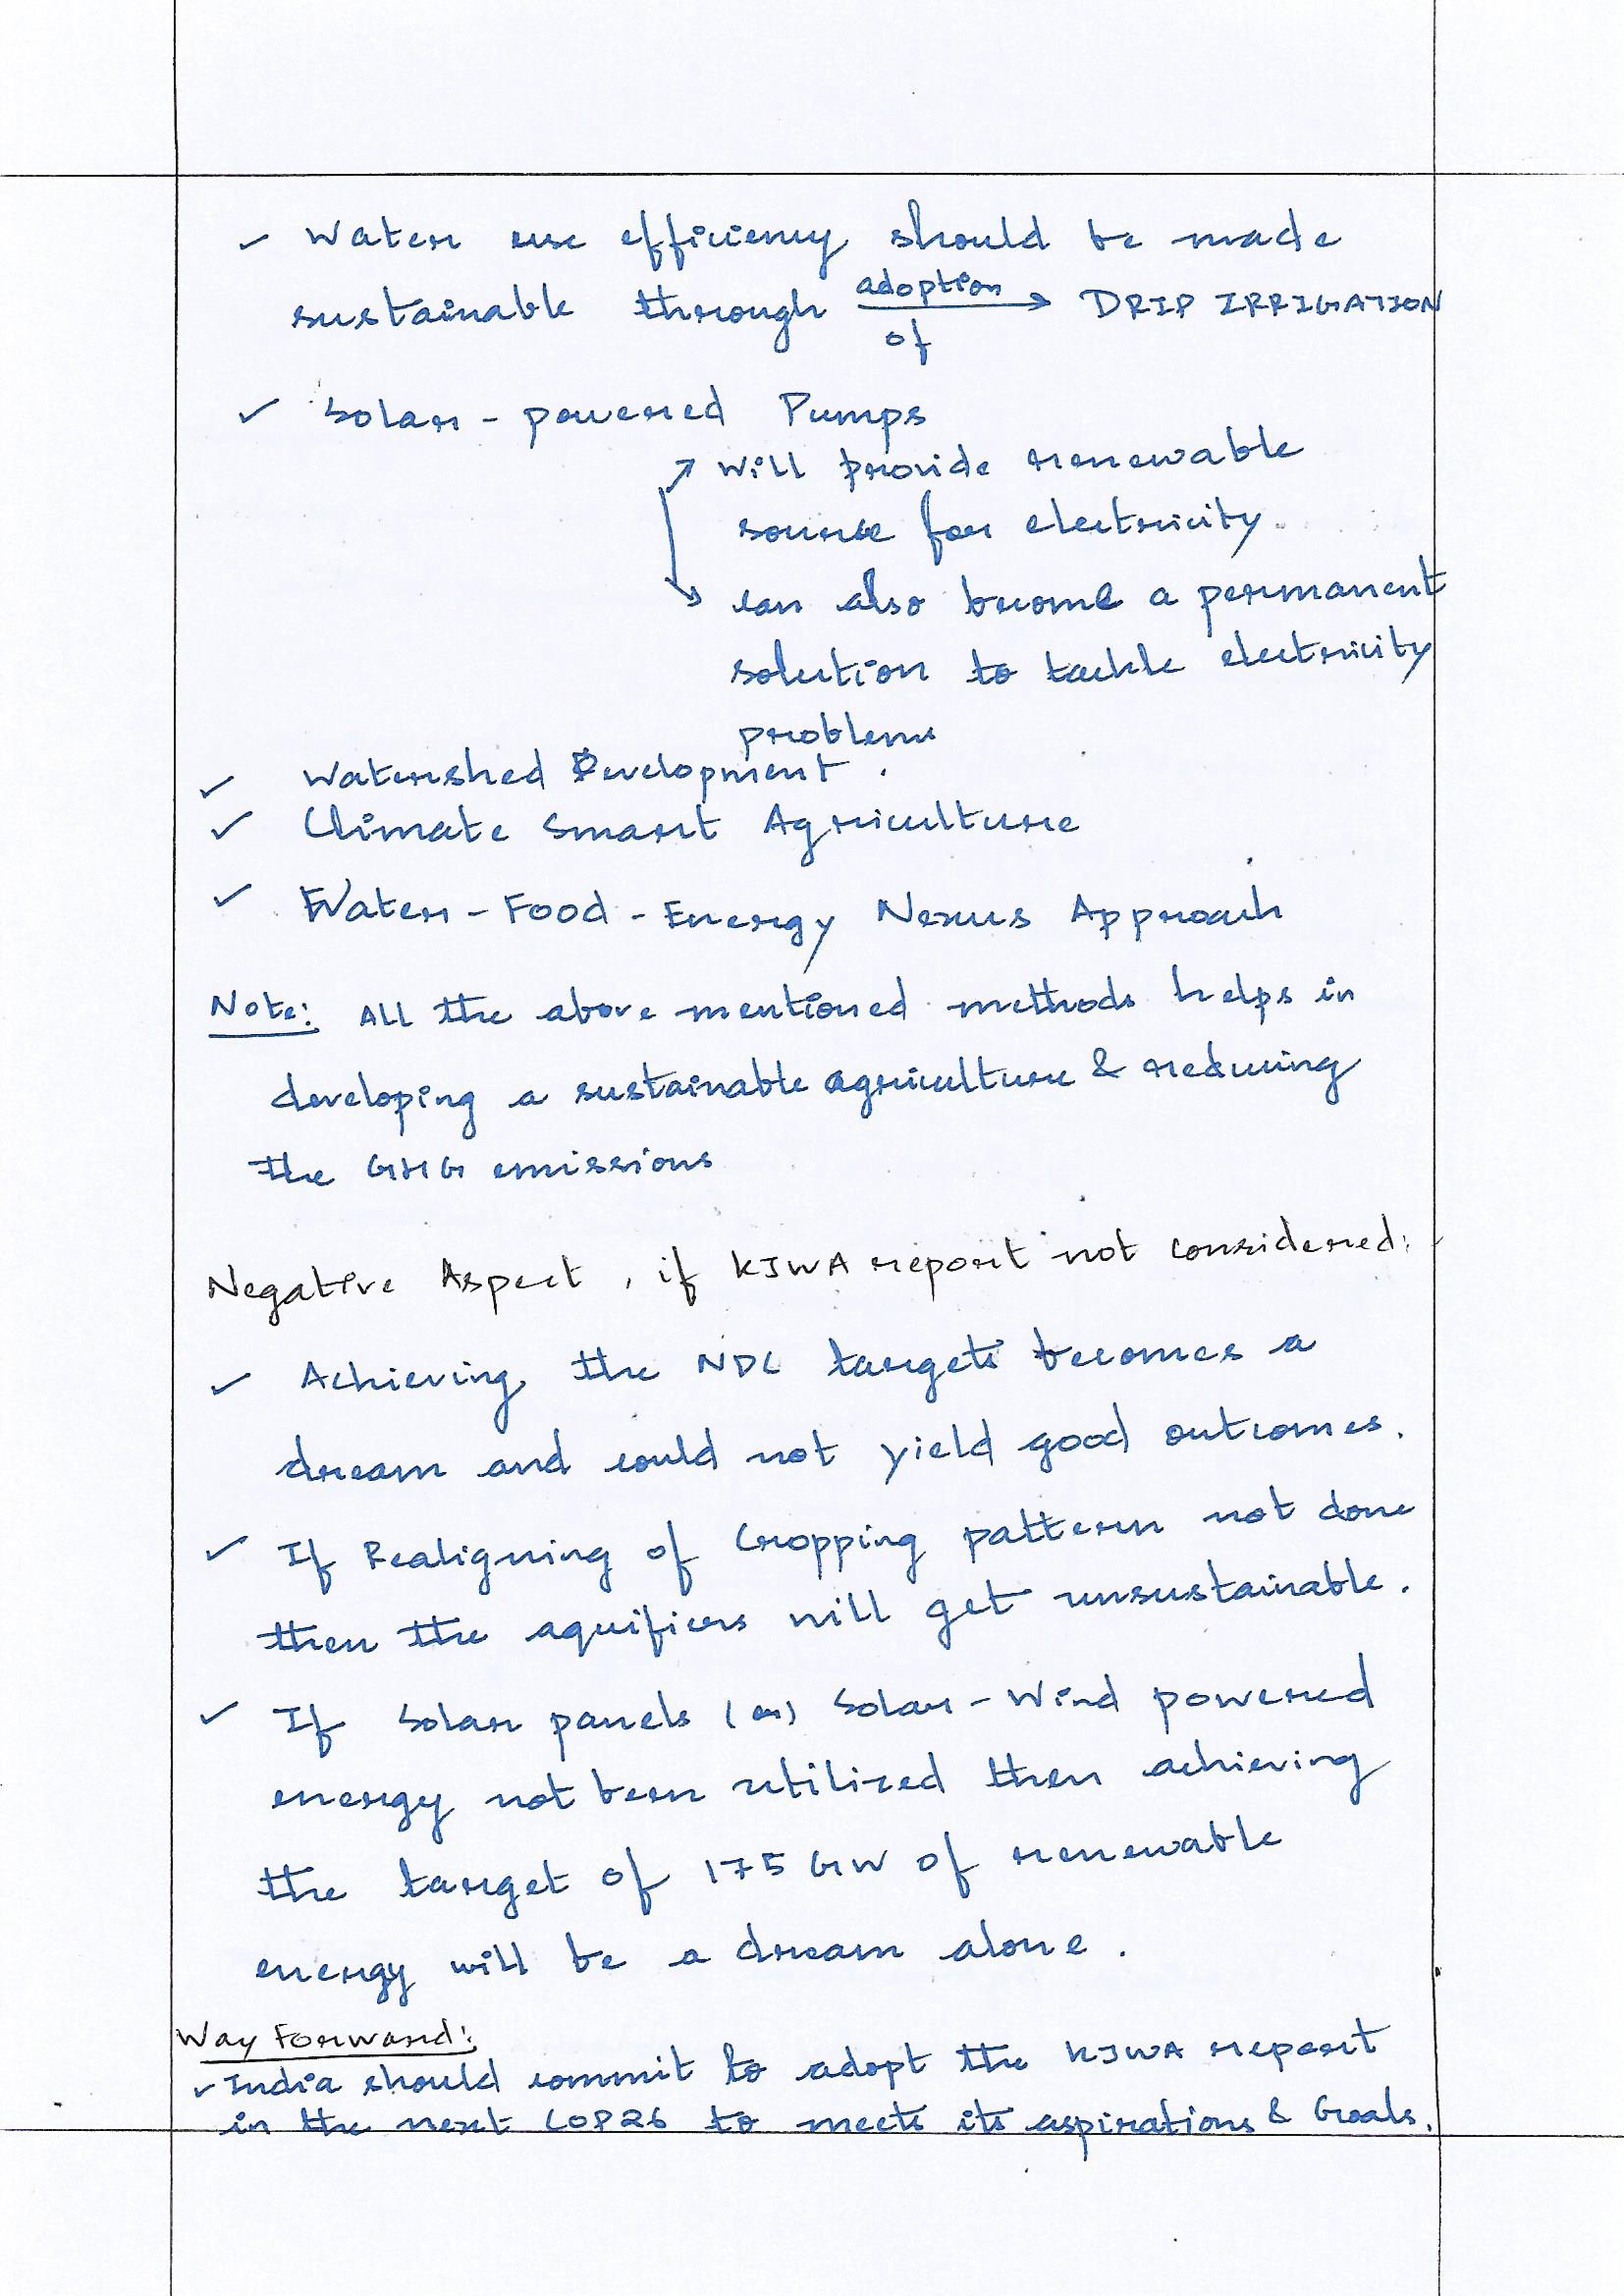 ✓ Water use efficiency should be made
sustainable through adoption of → DRIP IRRIGATION
✓ Solar-powered Pumps
↗ Will provide renewable
source for electricity.
↘ can also become a permanent
solution to tackle electricity
problems
✓ Watershed Development.
✓ Climate Smart Agriculture
✓ Water-Food-Energy Nexus Approach
Note: All the above mentioned methods helps in
developing a sustainable agriculture & reducing
the GHG emissions
Negative Aspect, if KJWA report not considered:
✓ Achieving the NDC targets becomes a
dream and could not yield good outcomes.
✓ If Realigning of Cropping pattern not done
then the aquifiers will get unsustainable.
✓ If Solar panels (or) Solar-Wind powered
energy not been utilized then achieving
the target of 175 GW of renewable
energy will be a dream alone.
Way Forward:
✓ India should commit to adopt the KJWA report
in the next COP26 to meets its aspirations & Goals.